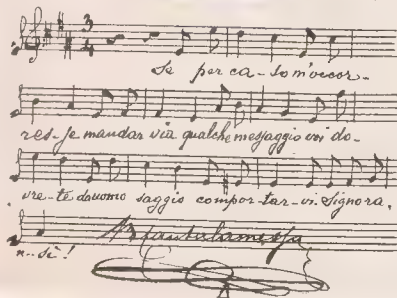 3
4
Se per ca-so m'occor-
res-se mandar via qualche messaggio voi do-
vre-te da uomo saggio compor-tar-vi. Signora,
n-sì!